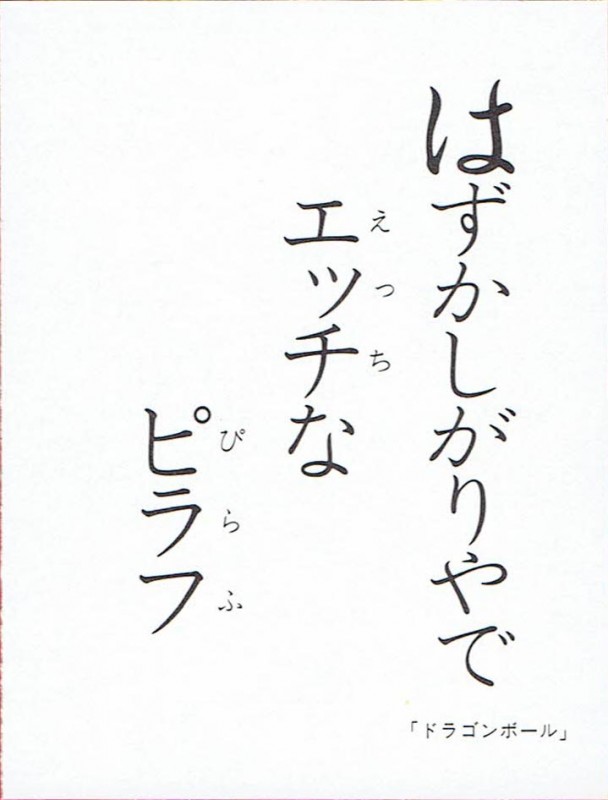 はずかしがりやで
エッチな
えっち
ピラフ
ぴらふ
「ドラゴンボール」